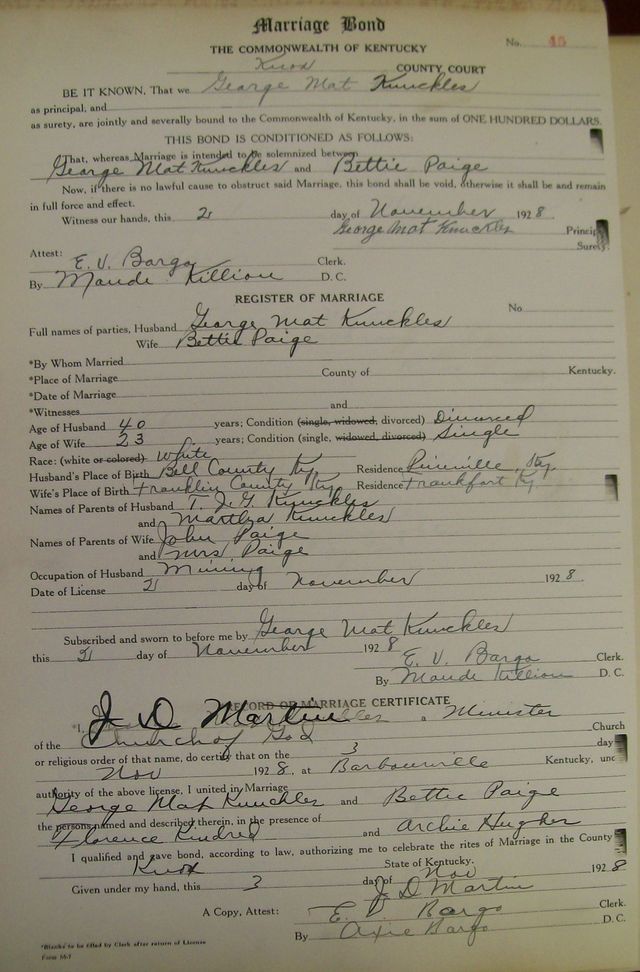 Marriage Bond
THE COMMONWEALTH OF KENTUCKY
No. 45
Knox COUNTY COURT
BE IT KNOWN, That we George Mat Knuckles
as principal, and
as surety, are jointly and severally bound to the Commonwealth of Kentucky, in the sum of ONE HUNDRED DOLLARS.
THIS BOND IS CONDITIONED AS FOLLOWS:
That, whereas Marriage is intended to be solemnized between
George Mat Knuckles and Bettie Paige
Now, if there is no lawful cause to obstruct said Marriage, this bond shall be void, otherwise it shall be and remain
in full force and effect.
Witness our hands, this 2 day of November 1928
George Mat Knuckles Principal
Surety
Attest:
E. V. Bargo Clerk.
By Maude Killion D. C.
REGISTER OF MARRIAGE
No
Full names of parties, Husband George Mat Knuckles
Wife Bettie Paige
*By Whom Married
*Place of Marriage County of Kentucky.
*Date of Marriage
*Witnesses and
Age of Husband 40 years; Condition (single, widowed, divorced) Divorced
Age of Wife 23 years; Condition (single, widowed, divorced) Single
Race: (white or colored) White
Husband's Place of Birth Bell County Ky. Residence Pineville, Ky.
Wife's Place of Birth Franklin County Ky Residence Frankfort Ky.
Names of Parents of Husband T. J. G. Knuckles
and Knuckles
Names of Parents of Wife John Paige
and Mrs Paige
Occupation of Husband Mining
Date of License 2 day of November 1928.
Subscribed and sworn to before me by George Mat Knuckles
this 2 day of November 1928
E. V. Bargo Clerk.
By Maude Killion D. C.
RECORD OF MARRIAGE CERTIFICATE
*I, J D Martin a Minister
of the Church of God Church
or religious order of that name, do certify that on the 3 day
Nov 1928, at Barbourville Kentucky, unc
authority of the above license, I united in Marriage
George Mat Knuckles and Bettie Paige
the persons named and described therein, in the presence of
Florence Kindred and Archie Hughes
I qualified and gave bond, according to law, authorizing me to celebrate the rites of Marriage in the County
Knox State of Kentucky.
Given under my hand, this 3 day of Nov 1928
J D Martin
A Copy, Attest: E. V. Bargo Clerk.
By Axie Bargo D. C.
*Blanks to be filled by Clerk after return of License
Form 56-7